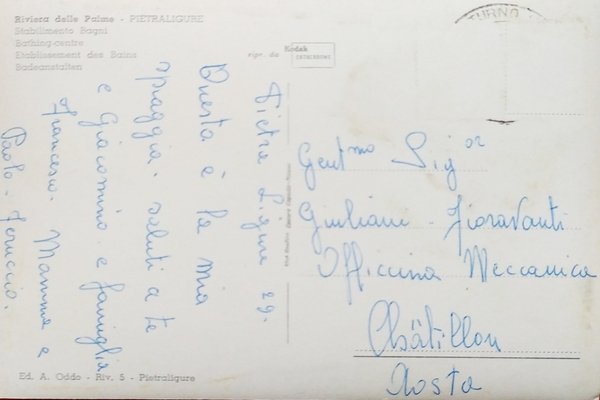 Riviera delle Palme - PIETRALIGURE
Stabilimento Bagni
Bathing-centre
Etablissement des Bains
Badeanstalten
ripr. da Kodak
Pietra Ligure 29.
Questa è la mia
spiaggia. saluti a te
e Giacomino e famiglia
Francesco. Mamma e
Paolo - Feruccio.
Gent.mo Sig.or
Giuliani - Fioravanti
Officina Meccanica
Châtillon
Aosta
Ed. A. Oddo - Riv. 5 - Pietraligure